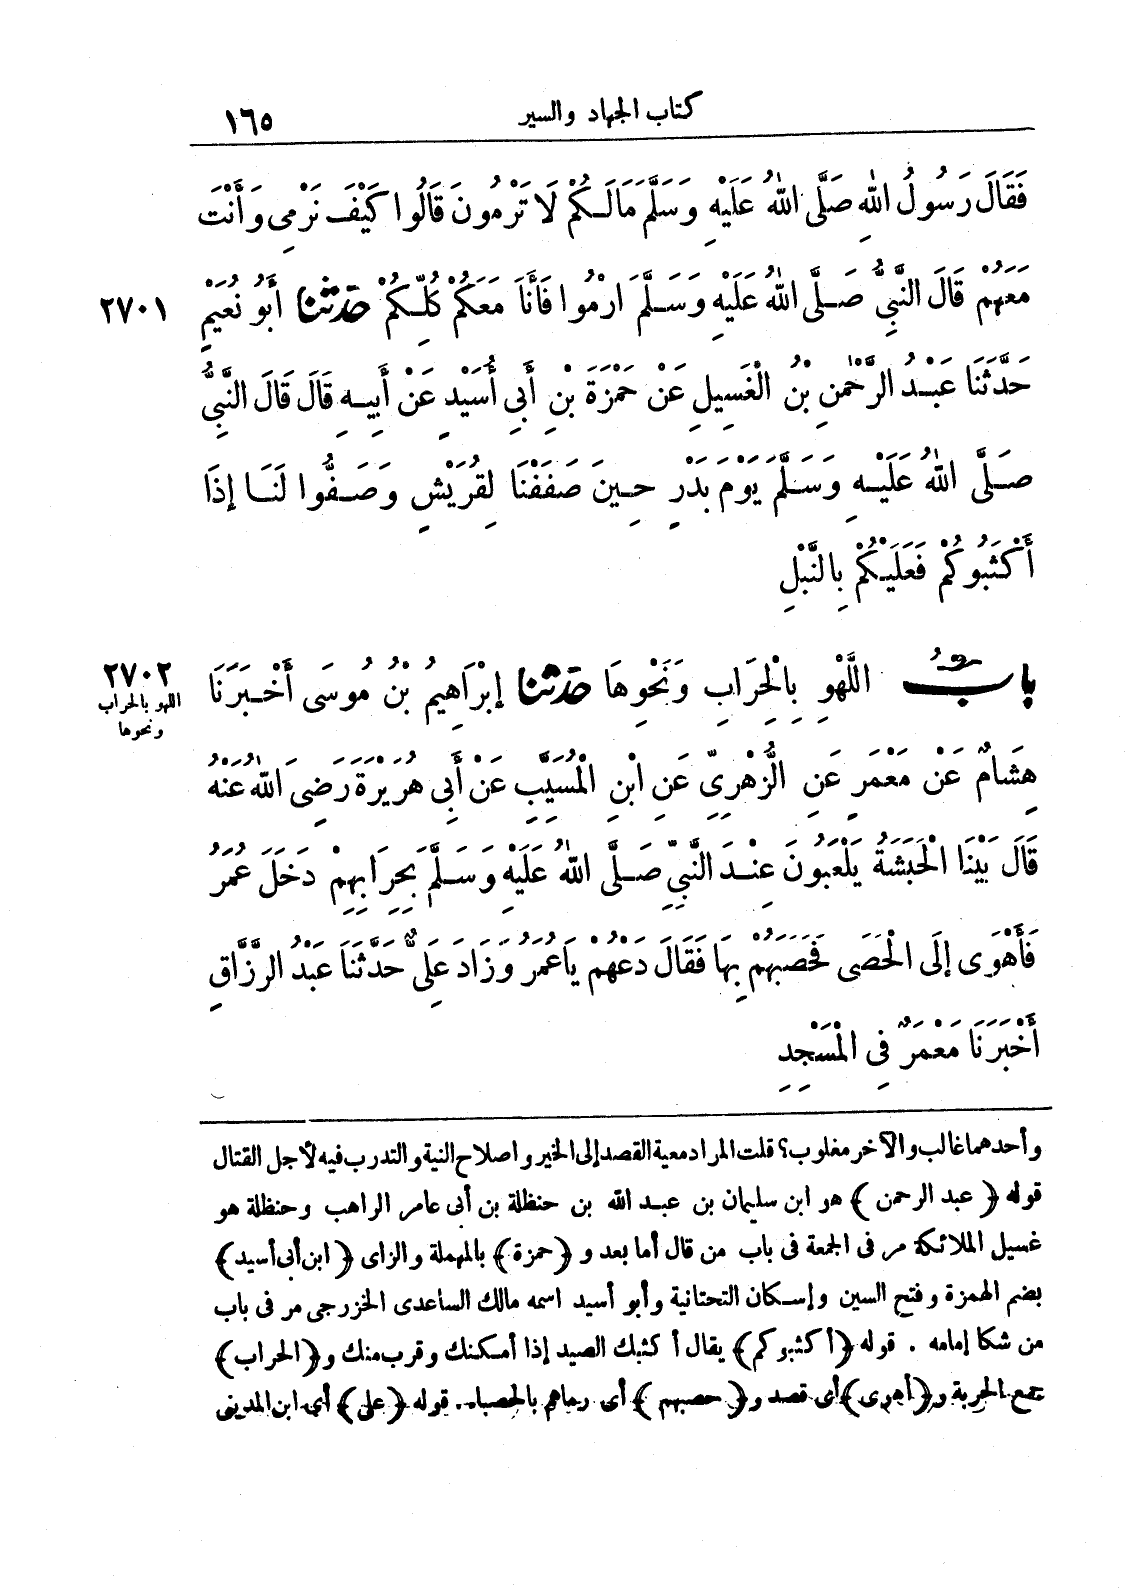 كتاب الجهاد والسير
١٦٥
فَقَالَ رَسُولُ اللهِ صَلَّى اللهُ عَلَيْهِ وَسَلَّمَ مَالَكُمْ لَا تَرْمُونَ قَالُوا كَيْفَ نَرْمِى وَأَنْتَ
مَعَهُمْ قَالَ النَّبِىُّ صَلَّى اللهُ عَلَيْهِ وَسَلَّمَ ارْمُوا فَأَنَا مَعَكُمْ كُلِّكُمْ حدثنا أَبُو نُعَيْمٍ
٢٧٠١
حَدَّثَنَا عَبْدُ الرَّحْمٰنِ بْنُ الْغَسِيلِ عَنْ حَمْزَةَ بْنِ أَبِى أُسَيْدٍ عَنْ أَبِيهِ قَالَ قَالَ النَّبِىُّ
صَلَّى اللهُ عَلَيْهِ وَسَلَّمَ يَوْمَ بَدْرٍ حِينَ صَفَفْنَا لِقُرَيْشٍ وَصَفُّوا لَنَا إِذَا
أَكْثَبُوكُمْ فَعَلَيْكُمْ بِالنَّبْلِ
بابُ اللَّهْوِ بِالْحِرَابِ وَنَحْوِهَا حدثنا إِبْرَاهِيمُ بْنُ مُوسَى أَخْبَرَنَا
٢٧٠٢
اللهو بالحراب
ونحوها
هِشَامٌ عَنْ مَعْمَرٍ عَنِ الزُّهْرِىِّ عَنِ ابْنِ الْمُسَيِّبِ عَنْ أَبِى هُرَيْرَةَ رَضِىَ اللهُ عَنْهُ
قَالَ بَيْنَا الْحَبَشَةُ يَلْعَبُونَ عِنْدَ النَّبِىِّ صَلَّى اللهُ عَلَيْهِ وَسَلَّمَ بِحِرَابِهِمْ دَخَلَ عُمَرُ
فَأَهْوَى إِلَى الْحَصَى فَحَصَبَهُمْ بِهَا فَقَالَ دَعْهُمْ يَا عُمَرُ وَزَادَ عَلِىٌّ حَدَّثَنَا عَبْدُ الرَّزَّاقِ
أَخْبَرَنَا مَعْمَرٌ فِى الْمَسْجِدِ
وأحدهما غالب والآخر مغلوب؟ قلت المراد معية القصد إلى الخير واصلاح النية والتدرب فيه لأجل القتال
قوله ﴿عبد الرحمن﴾ هو ابن سليمان بن عبد الله بن حنظلة بن أبى عامر الراهب وحنظلة هو
غسيل الملائكة مر فى الجمعة فى باب من قال أما بعد و ﴿حمزة﴾ بالمهملة والزاى ﴿ابن أبى أسيد﴾
بضم الهمزة وفتح السين وإسكان التحتانية وأبو أسيد اسمه مالك الساعدى الخزرجى مر فى باب
من شكا إمامه . قوله ﴿أكثبوكم﴾ يقال أكثبك الصيد إذا أمكنك وقرب منك و﴿الحراب﴾
جمع الحربة و﴿أهوى﴾ أى قصد و﴿حصبهم﴾ أى رماهم بالحصباء. قوله ﴿على﴾ أى ابن المدينى